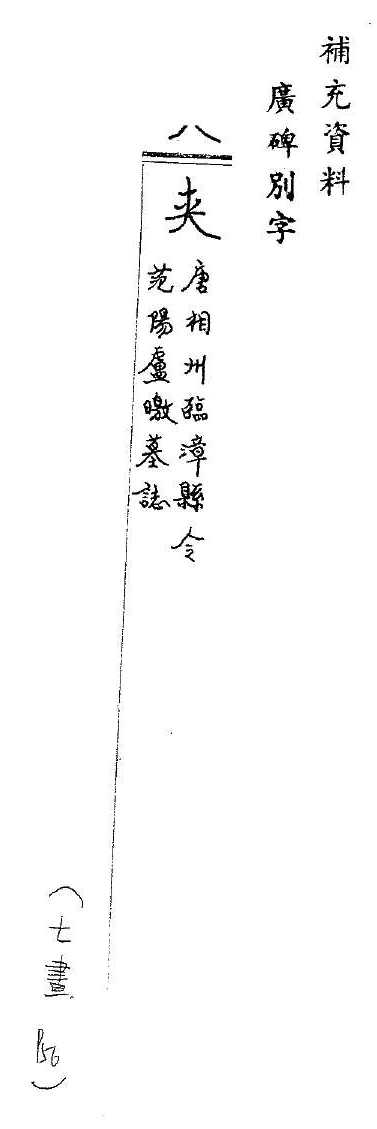 補充資料
廣碑別字
八
夹
唐相州臨漳縣令
范陽盧曒墓誌
(七畫 P56)